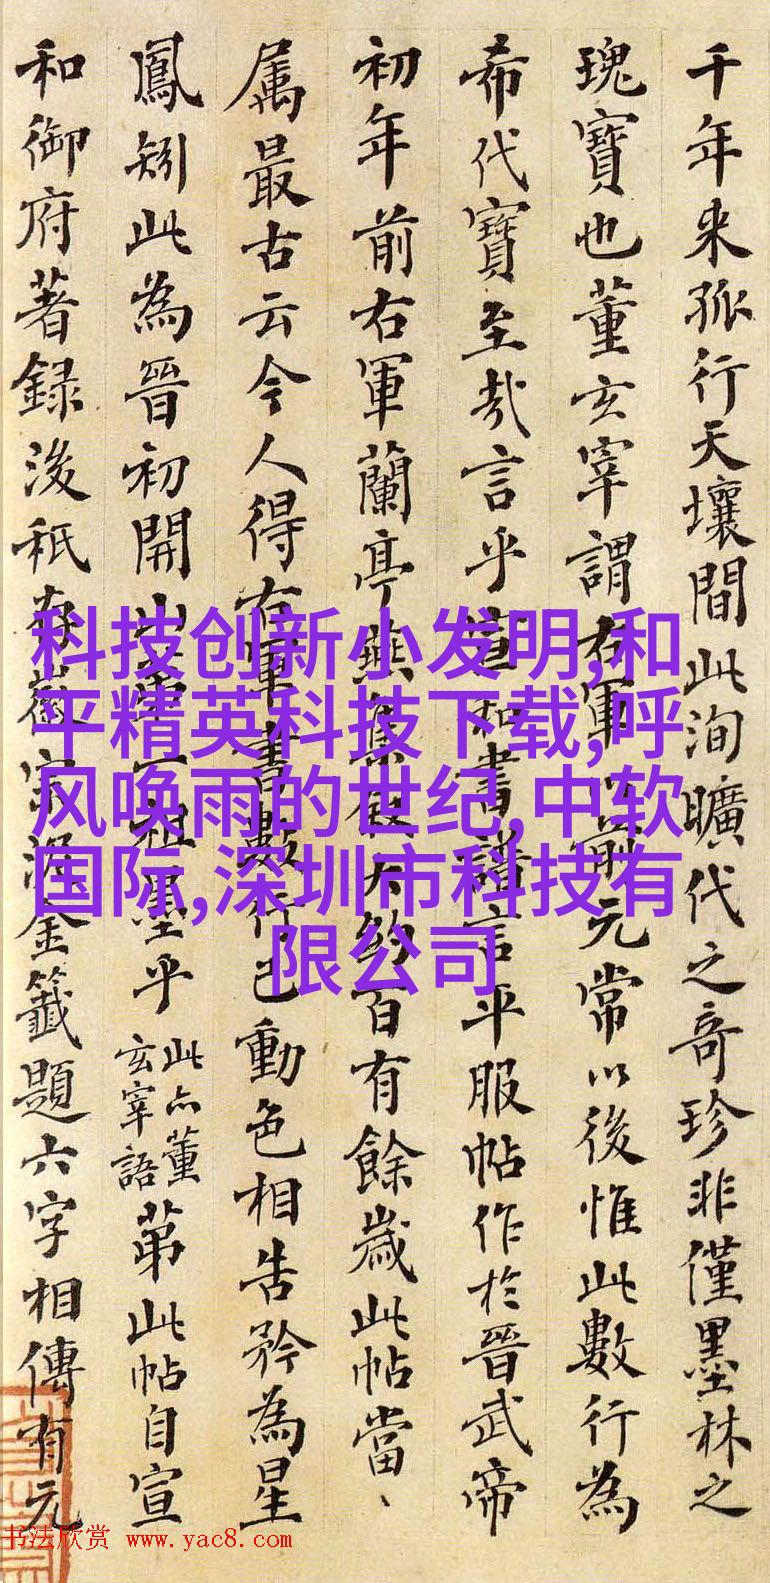 千年来孤行天壤間此洵曠代之奇珍非僅墨林之
瑰寶也董玄宰謂右軍以前元常以後惟此數行為
希代寶至哉言乎宣和書譜言平服帖作於晉武帝
初年前右軍蘭亭燕集叙大約百有餘歲此帖當、
属最古云今人得右軍書數行已動色相告矜為星
鳳矧此為晉初開山第一祖墨乎
此亦董
玄宰語
苐此帖自宣
和御府著録後秖存徽宗泥金籤題六字相傳有元
科技创新小发明,和
平精英科技下载,呼
风唤雨的世纪,中软
国际,深圳市科技有
限公司
书法欣赏 www.yac8.com